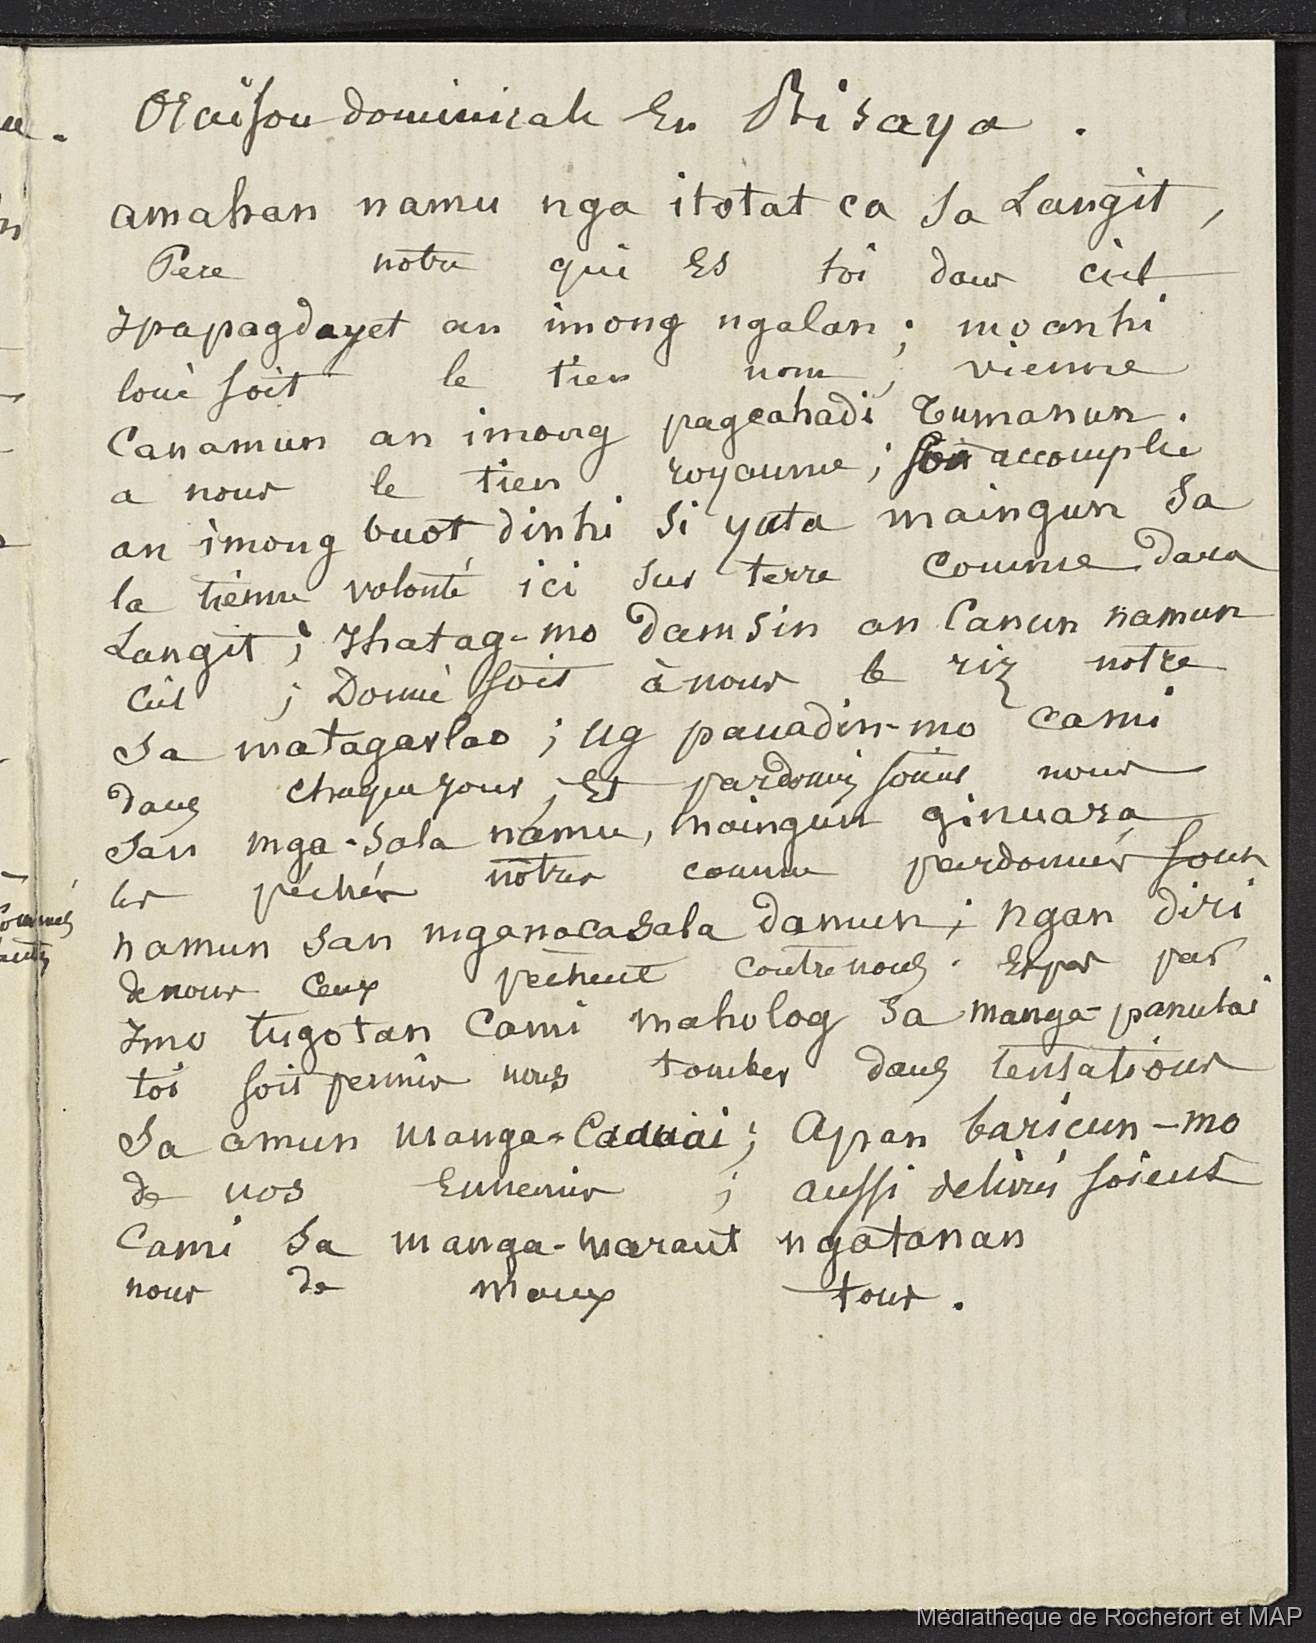 Oraison dominicale En Bisaya .
amahan namu nga itotat ca sa Langit ,
Pere notre qui Es toi dans ciel
Ipapagdayet an imong ngalan ; moanhi
loué soit le tien nom ; vienne
Canamun an imong pagcahadi Tumanun .
a nous le tien royaume ; soit accomplie
an imong buot dinhi si yuta maingun sa
la tienne volonté ici sur terre comme dans
Langit ; Ihatag-mo damsin an Canun namun
Ciel ; Donné soit à nous le riz notre
sa matagarlao ; ug pauadin-mo cami
dans chaque jour ; Et pardonnés soient nous
san mga-sala namu, maingun ginuara
les péchés notres comme pardonnés sont
namun san mganacasala damun ; ngan diri
de nous Ceux pèchent contre nous . Et par pas
Imo tugotan Cami maholog sa manga-panulai
toi soit permis nous tomber dans tentations
sa amun manga-Caauai ; Apan baricun-mo
de nos Ennemis ; aussi delivrés soient
Cami sa manga-maraut ngatanan
nous de Maux tous .
Médiathèque de Rochefort et MAP